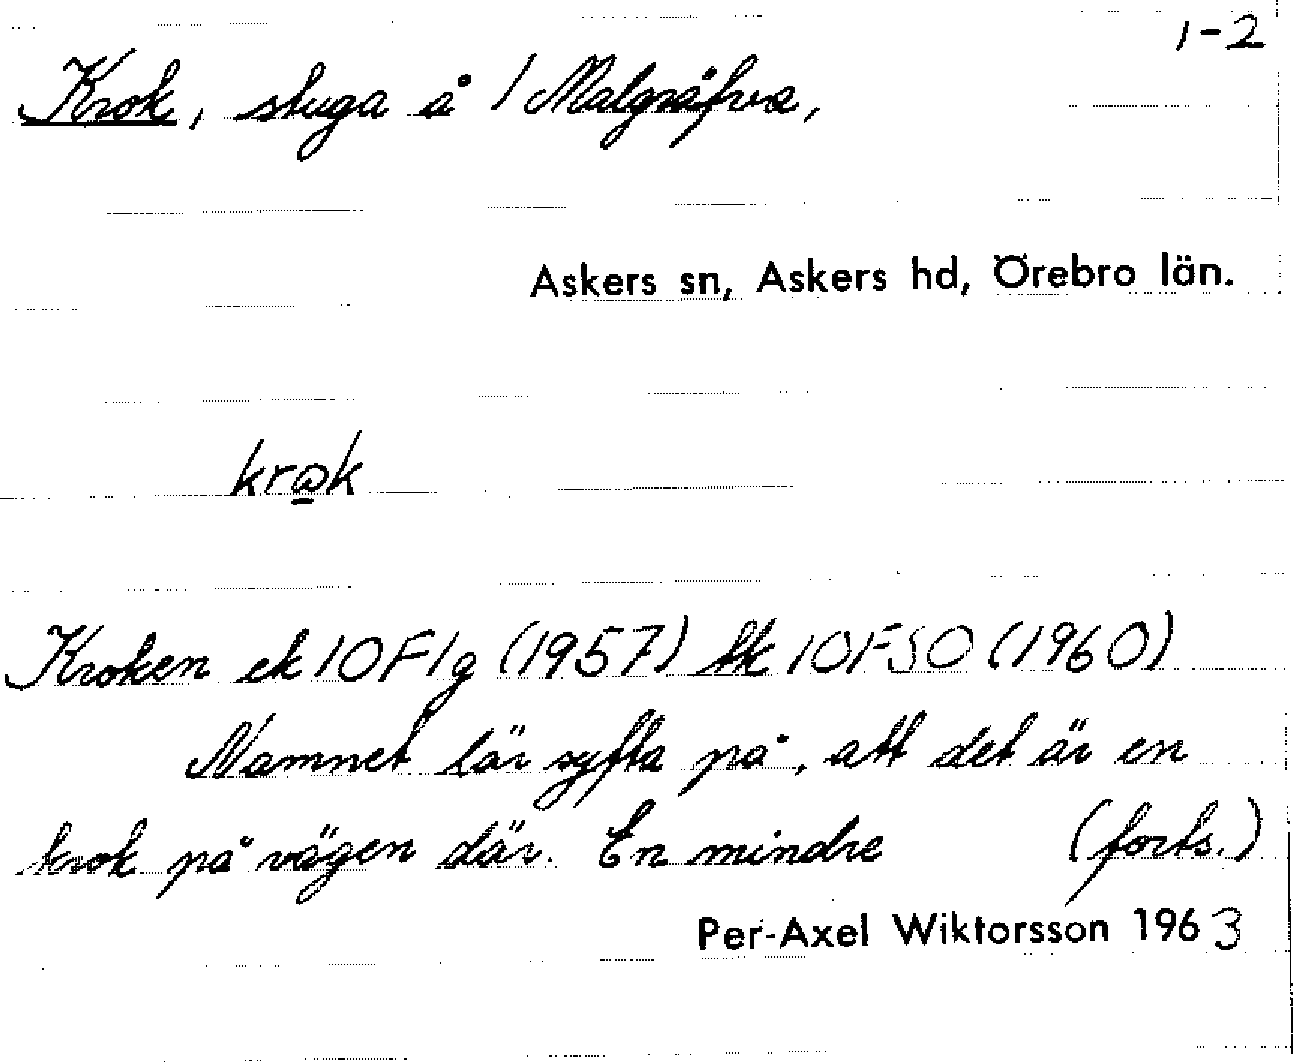 1-2
Krok, stuga å 1 Malgräfva,
Askers sn, Askers hd, Örebro län.
krωk
Kroken ek 10F1g (1957) tk 10FSO (1960)
Namnet lär syfta på, att det är en
krok på vägen där. En mindre (forts.)
Per-Axel Wiktorsson 1963